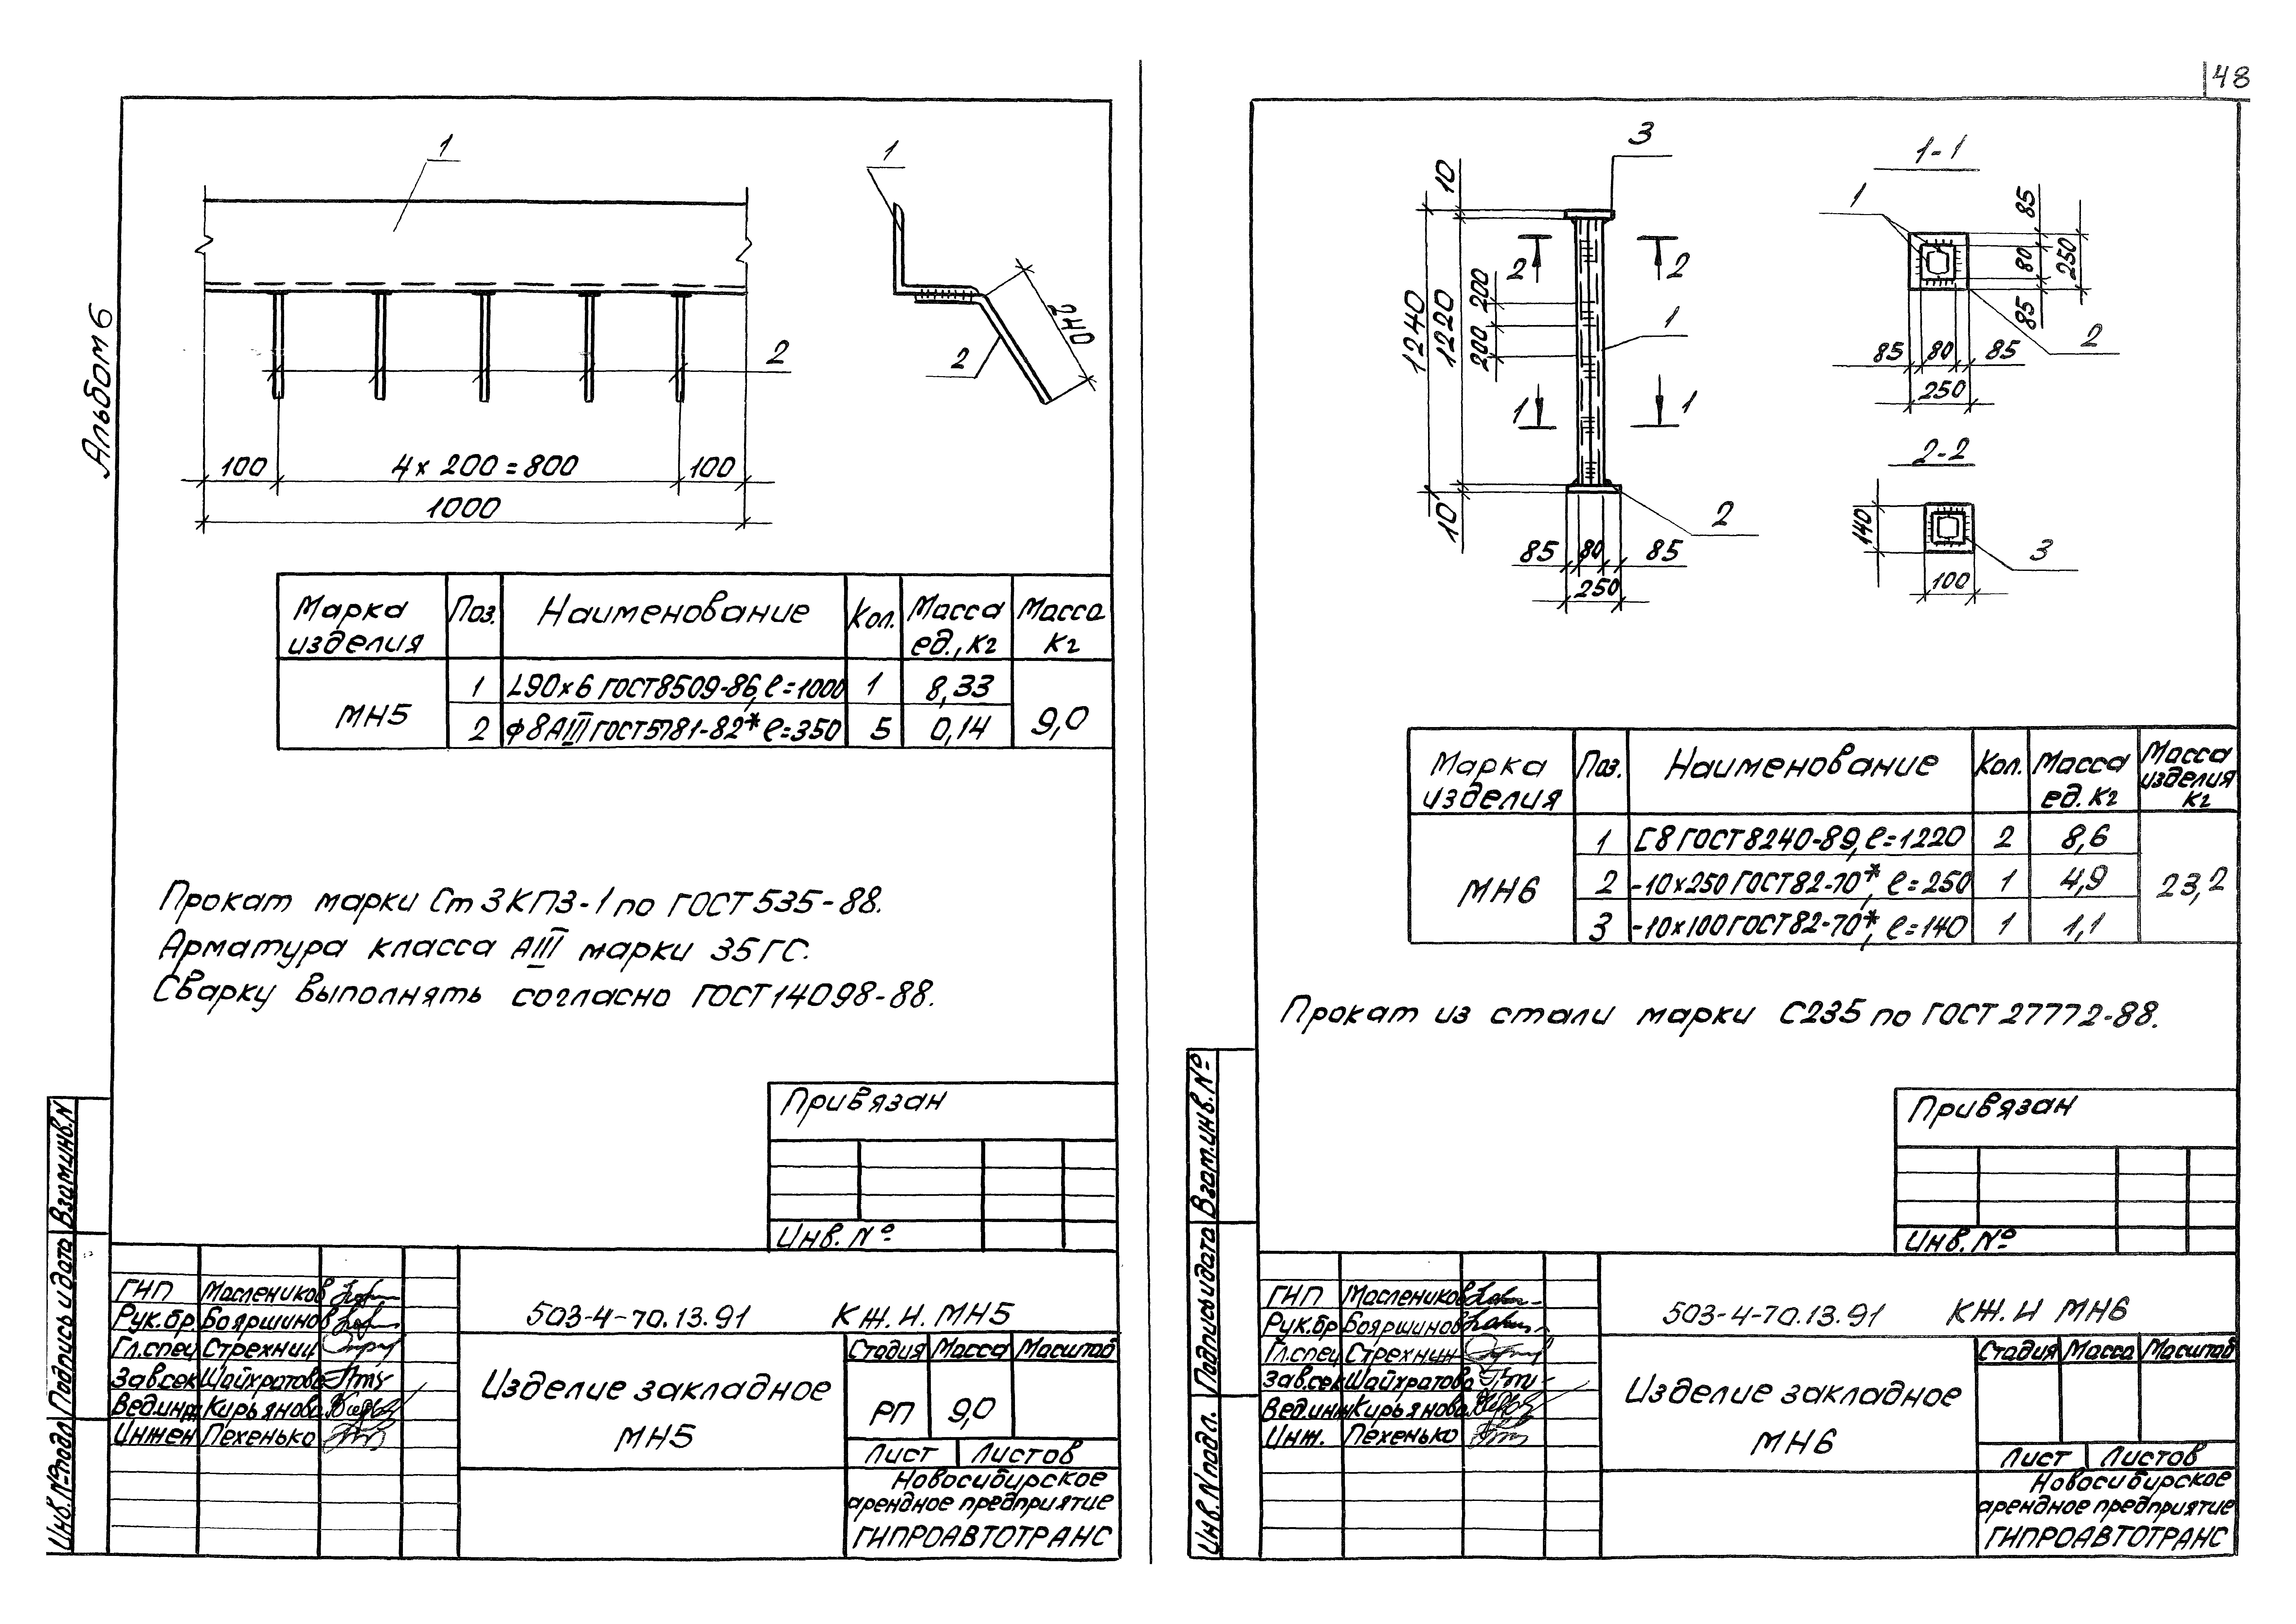 48
Альбом 6
1
1
2
2
240
100
4 х 200 = 800
100
1000
Марка изделия
Поз.
Наименование
Кол.
Масса ед., кг
Масса кг
МН5
1
L90×6 ГОСТ 8509-86, ℓ=1000
1
8,33
2
ф8АIII ГОСТ 5781-82* ℓ=350
5
0,14
9,0
Прокат марки Ст3КП3-1 по ГОСТ 535-88.
Арматура класса АIII марки 35ГС.
Сварку выполнять согласно ГОСТ 14098-88.
Привязан
Инв. №
Взам.инв.N
Подпись и дата
Инв. № подл
ГИП Маслеников
Рук.бр. Бояршинов
Гл.спец Стрехнин
Зав.сек Шайхратова
Вед.инж Кирьянова
Инжен Пехенько
503-4-70.13.91 КЖ.И.МН5
Изделие закладное
МН5
Стадия Масса Масштаб
РП 9,0
Лист Листов
Новосибирское
арендное предприятие
ГИПРОАВТОТРАНС
3
10
1240
1220
200
200
10
2 2
1
1 1
2
85 80 85
250
1-1
1
85
80
250
85
2
85 80 85
250
2-2
140
3
100
Марка изделия
Поз.
Наименование
Кол.
Масса ед. кг
Масса изделия кг
МН6
1
[8 ГОСТ 8240-89, ℓ=1220
2
8,6
2
-10×250 ГОСТ 82-70*, ℓ=250
1
4,9
3
-10×100 ГОСТ 82-70*, ℓ=140
1
1,1
23,2
Прокат из стали марки С235 по ГОСТ 27772-88.
Привязан
Инв. №
Взам.инв.№
Подпись и дата
Инв. N подл.
ГИП Маслеников
Рук.бр Бояршинов
Гл.спец Стрехнин
Зав.сек Шайхратова
Вед.инж Кирьянова
Инж. Пехенько
503-4-70.13.91 КЖ.И МН6
Изделие закладное
МН6
Стадия Масса Масштаб
Лист Листов
Новосибирское
арендное предприятие
ГИПРОАВТОТРАНС